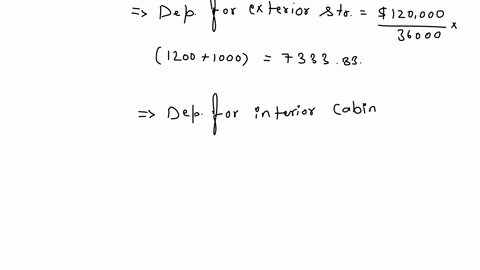 => Dep. for exterior str. = $120,000 / 36000 ×
(1200 + 1000) = 7333.33.
=> Dep. for interior cabin